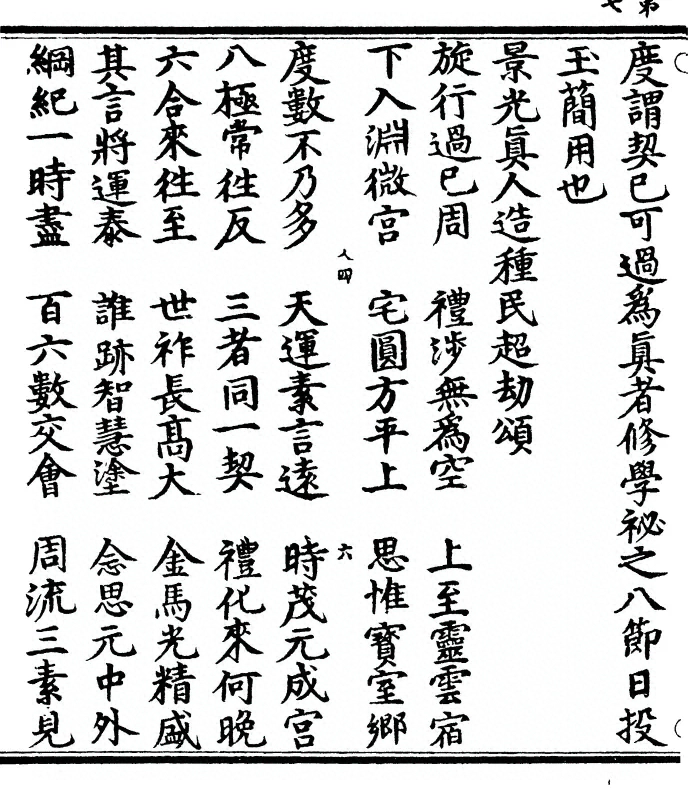 第七
度謂契已可過爲眞者修學祕之八節日投
玉蕳用也
景光眞人造種民超劫頌
旋行過已周　禮涉無爲空　上至靈雲宿
下入淵微宮　宅圓方平上　思惟寶室鄉
人四　六
度數不乃多　天運素言遠　時茂元成宮
八極常徃反　三者同一契　禮化來何晚
六合來徃至　世祚長高大　金馬光精盛
其言將運泰　誰跡智慧塗　念思元中外
綱紀一時盡　百六數交會　周流三素見